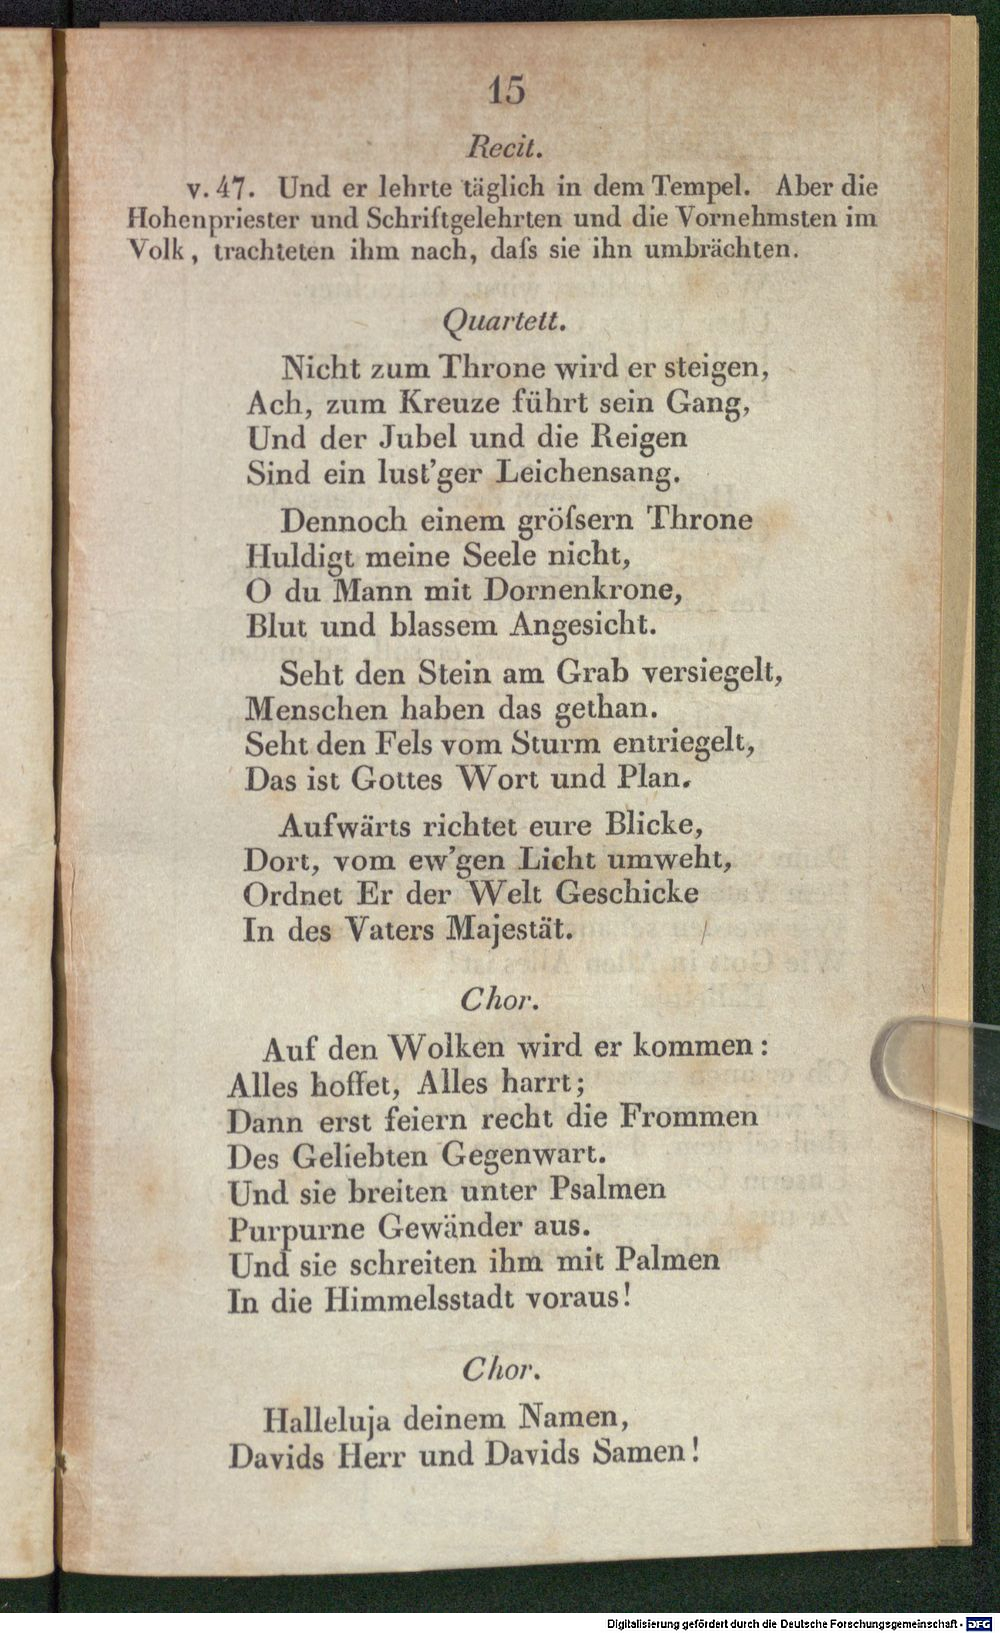 15
Recit.
v. 47. Und er lehrte täglich in dem Tempel. Aber die
Hohenpriester und Schriftgelehrten und die Vornehmsten im
Volk, trachteten ihm nach, daſs sie ihn umbrächten.
Quartett.
Nicht zum Throne wird er steigen,
Ach, zum Kreuze führt sein Gang,
Und der Jubel und die Reigen
Sind ein lust'ger Leichensang.
Dennoch einem gröſsern Throne
Huldigt meine Seele nicht,
O du Mann mit Dornenkrone,
Blut und blassem Angesicht.
Seht den Stein am Grab versiegelt,
Menschen haben das gethan.
Seht den Fels vom Sturm entriegelt,
Das ist Gottes Wort und Plan.
Aufwärts richtet eure Blicke,
Dort, vom ew'gen Licht umweht,
Ordnet Er der Welt Geschicke
In des Vaters Majestät.
Chor.
Auf den Wolken wird er kommen:
Alles hoffet, Alles harrt;
Dann erst feiern recht die Frommen
Des Geliebten Gegenwart.
Und sie breiten unter Psalmen
Purpurne Gewänder aus.
Und sie schreiten ihm mit Palmen
In die Himmelsstadt voraus!
Chor.
Halleluja deinem Namen,
Davids Herr und Davids Samen!
Digitalisierung gefördert durch die Deutsche Forschungsgemeinschaft - DFG